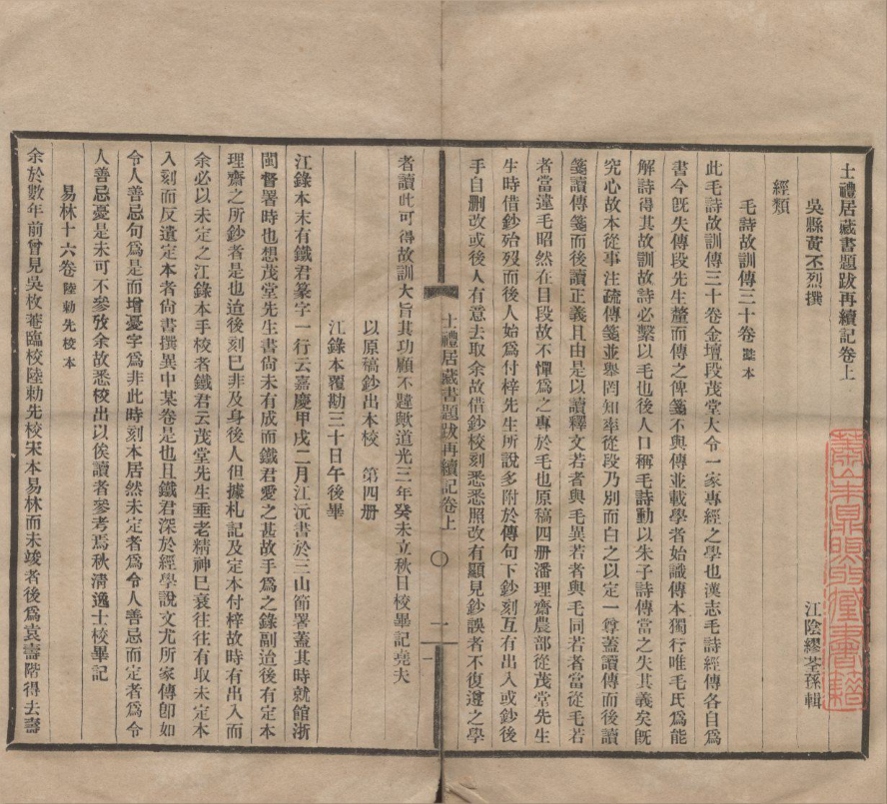 士禮居藏書題跋再續記卷上
吳縣黃丕烈撰
江陰繆荃孫輯
經類
毛詩故訓傳三十卷 本
此毛詩故訓傳三十卷金壇段茂堂大令一家專經之學也漢志毛詩經傳各自爲
書今旣失傳段先生釐而傳之俾箋不與傳並載學者始識傳本獨行唯毛氏爲能
解詩得其故訓故詩必繫以毛也後人口稱毛詩動以朱子詩傳當之失其義矣旣
究心故本從事注疏傳箋並舉罔知率從段乃別而白之以定一尊蓋讀傳而後讀
箋讀傳箋而後讀正義且由是以讀釋文若者與毛異若者與毛同若者當從毛若
者當違毛昭然在目段故不憚爲之專於毛也原稿四册潘理齋農部從茂堂先生
生時借鈔殆歿而後人始爲付梓先生所說多附於傳句下鈔刻互有出入或鈔後
手自刪改或後人有意去取余故借鈔校刻悉悉照改有顯見鈔誤者不復遵之學
士禮居藏書題跋再續記卷上 一
者讀此可得故訓大旨其功顧不韙歟道光三年癸未立秋日校畢記蕘夫
以原稿鈔出本校 第四册
江錄本覆勘三十日午後畢
江錄本末有鐵君篆字一行云嘉慶甲戌二月江沅書於三山節署蓋其時就館浙
閩督署時也想茂堂先生書尙未有成而鐵君愛之甚故手爲之錄副迨後有定本
理齋之所鈔者是也迨後刻巳非及身後人但據札記及定本付梓故時有出入而
余必以未定之江錄本手校者鐵君云茂堂先生垂老精神巳衰往往有取未定本
入刻而反遺定本者尙書撰異中某卷是也且鐵君深於經學說文尤所家傳卽如
令人善忌句爲是而增憂字爲非此時刻本居然未定者爲令人善忌而定者爲令
人善忌憂是未可不參攷余故悉校出以俟讀者參考焉秋淸逸士校畢記
易林十六卷 陸勅先校本
余於數年前曾見吳枚菴臨校陸勅先校宋本易林而未竣者後爲袁壽階得去壽